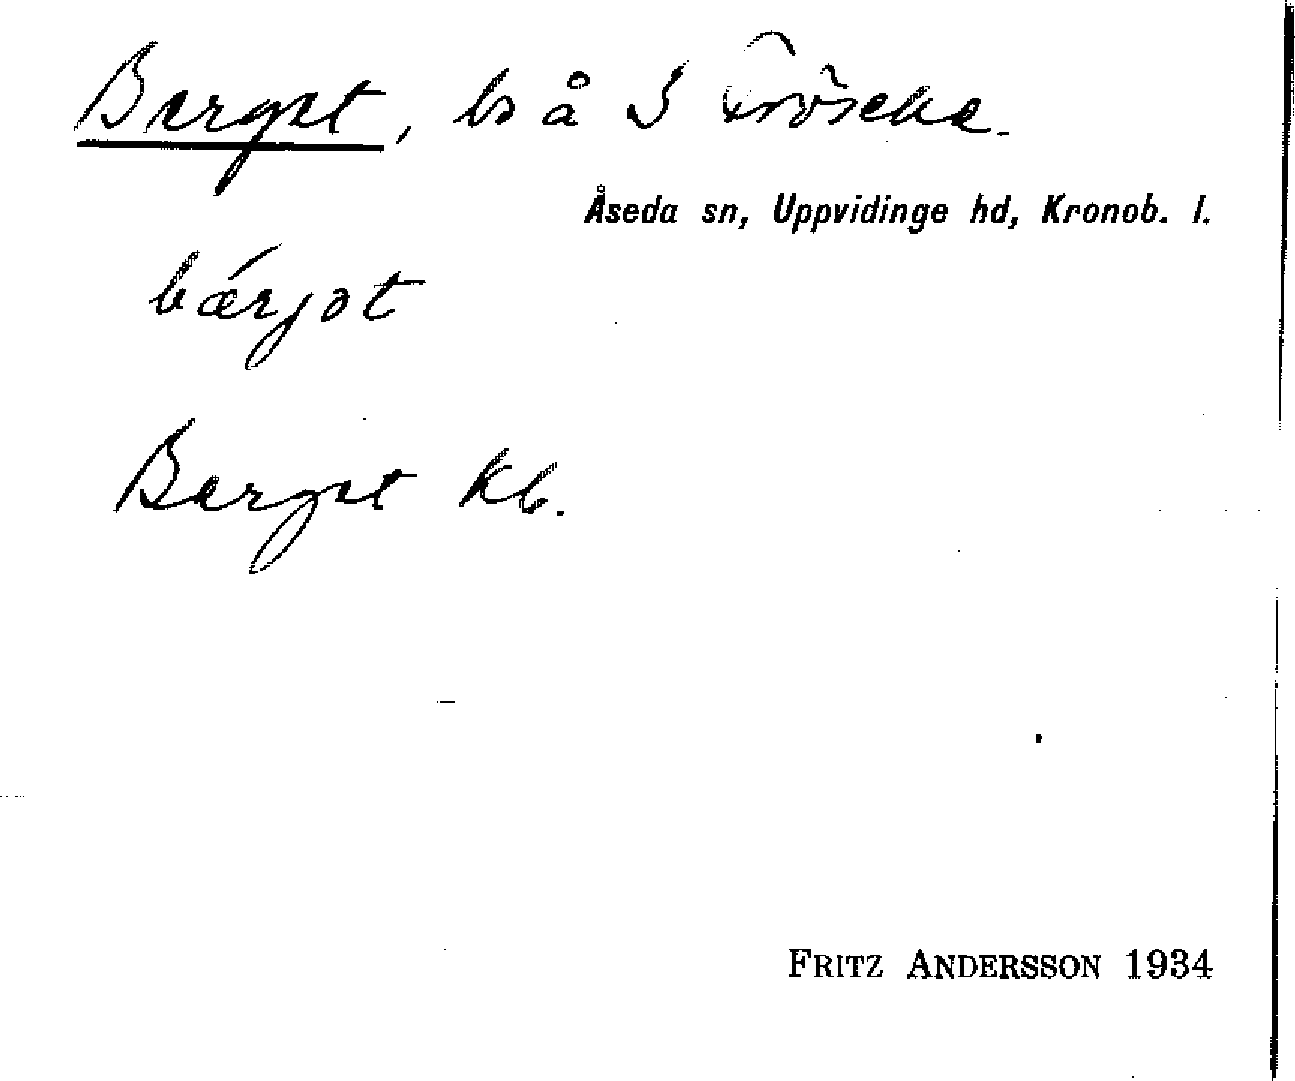 Berget, bs å S Fröseke.
Åseda sn, Uppvidinge hd, Kronob. l.
bǽrjət
Berget Kb.
FRITZ ANDERSSON 1934